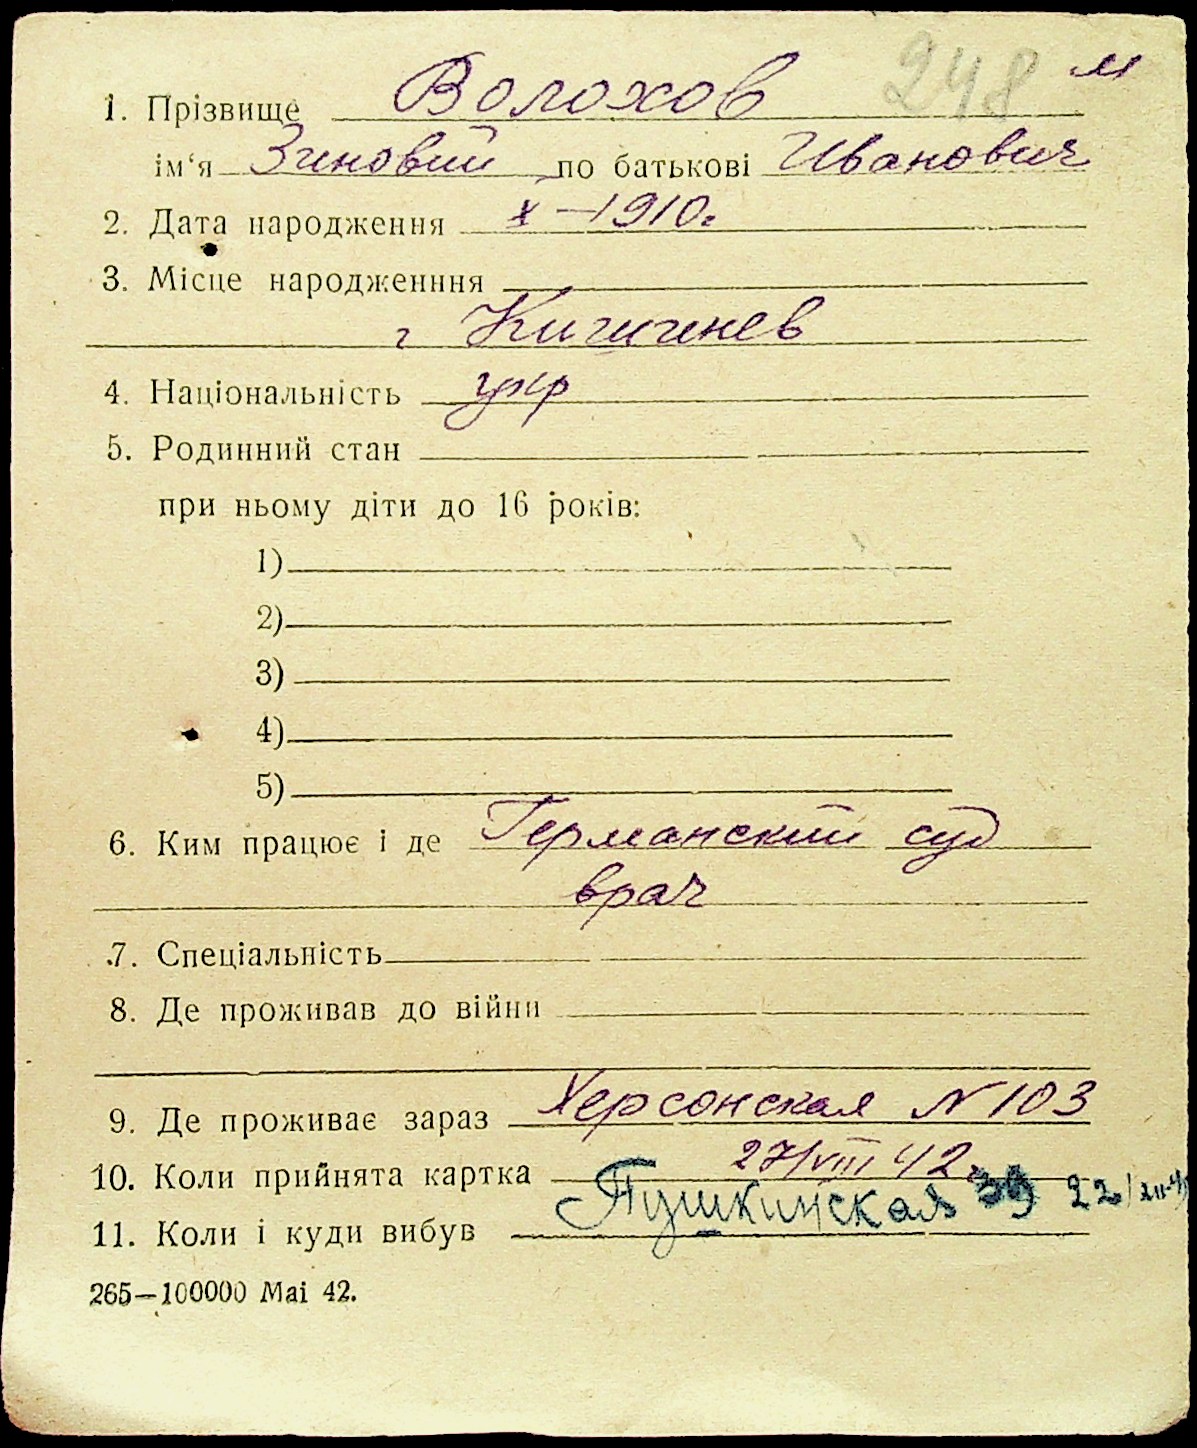 248 м
1. Прізвище Волохов
ім‘я Зиновий по батькові Иванович
2. Дата народження X–1910г
3. Місце народженння
г Кишинев
4. Національність укр
5. Родинний стан
при ньому діти до 16 років:
1)
2)
3)
4)
5)
6. Ким працює і де Германский суд
врач
7. Спеціальність
8. Де проживав до війни
9. Де проживає зараз Херсонская N 103
10. Коли прийнята картка 27/VIII 42
Пушкинская 39 22/
11. Коли і куди вибув
265—100000 Маі 42.